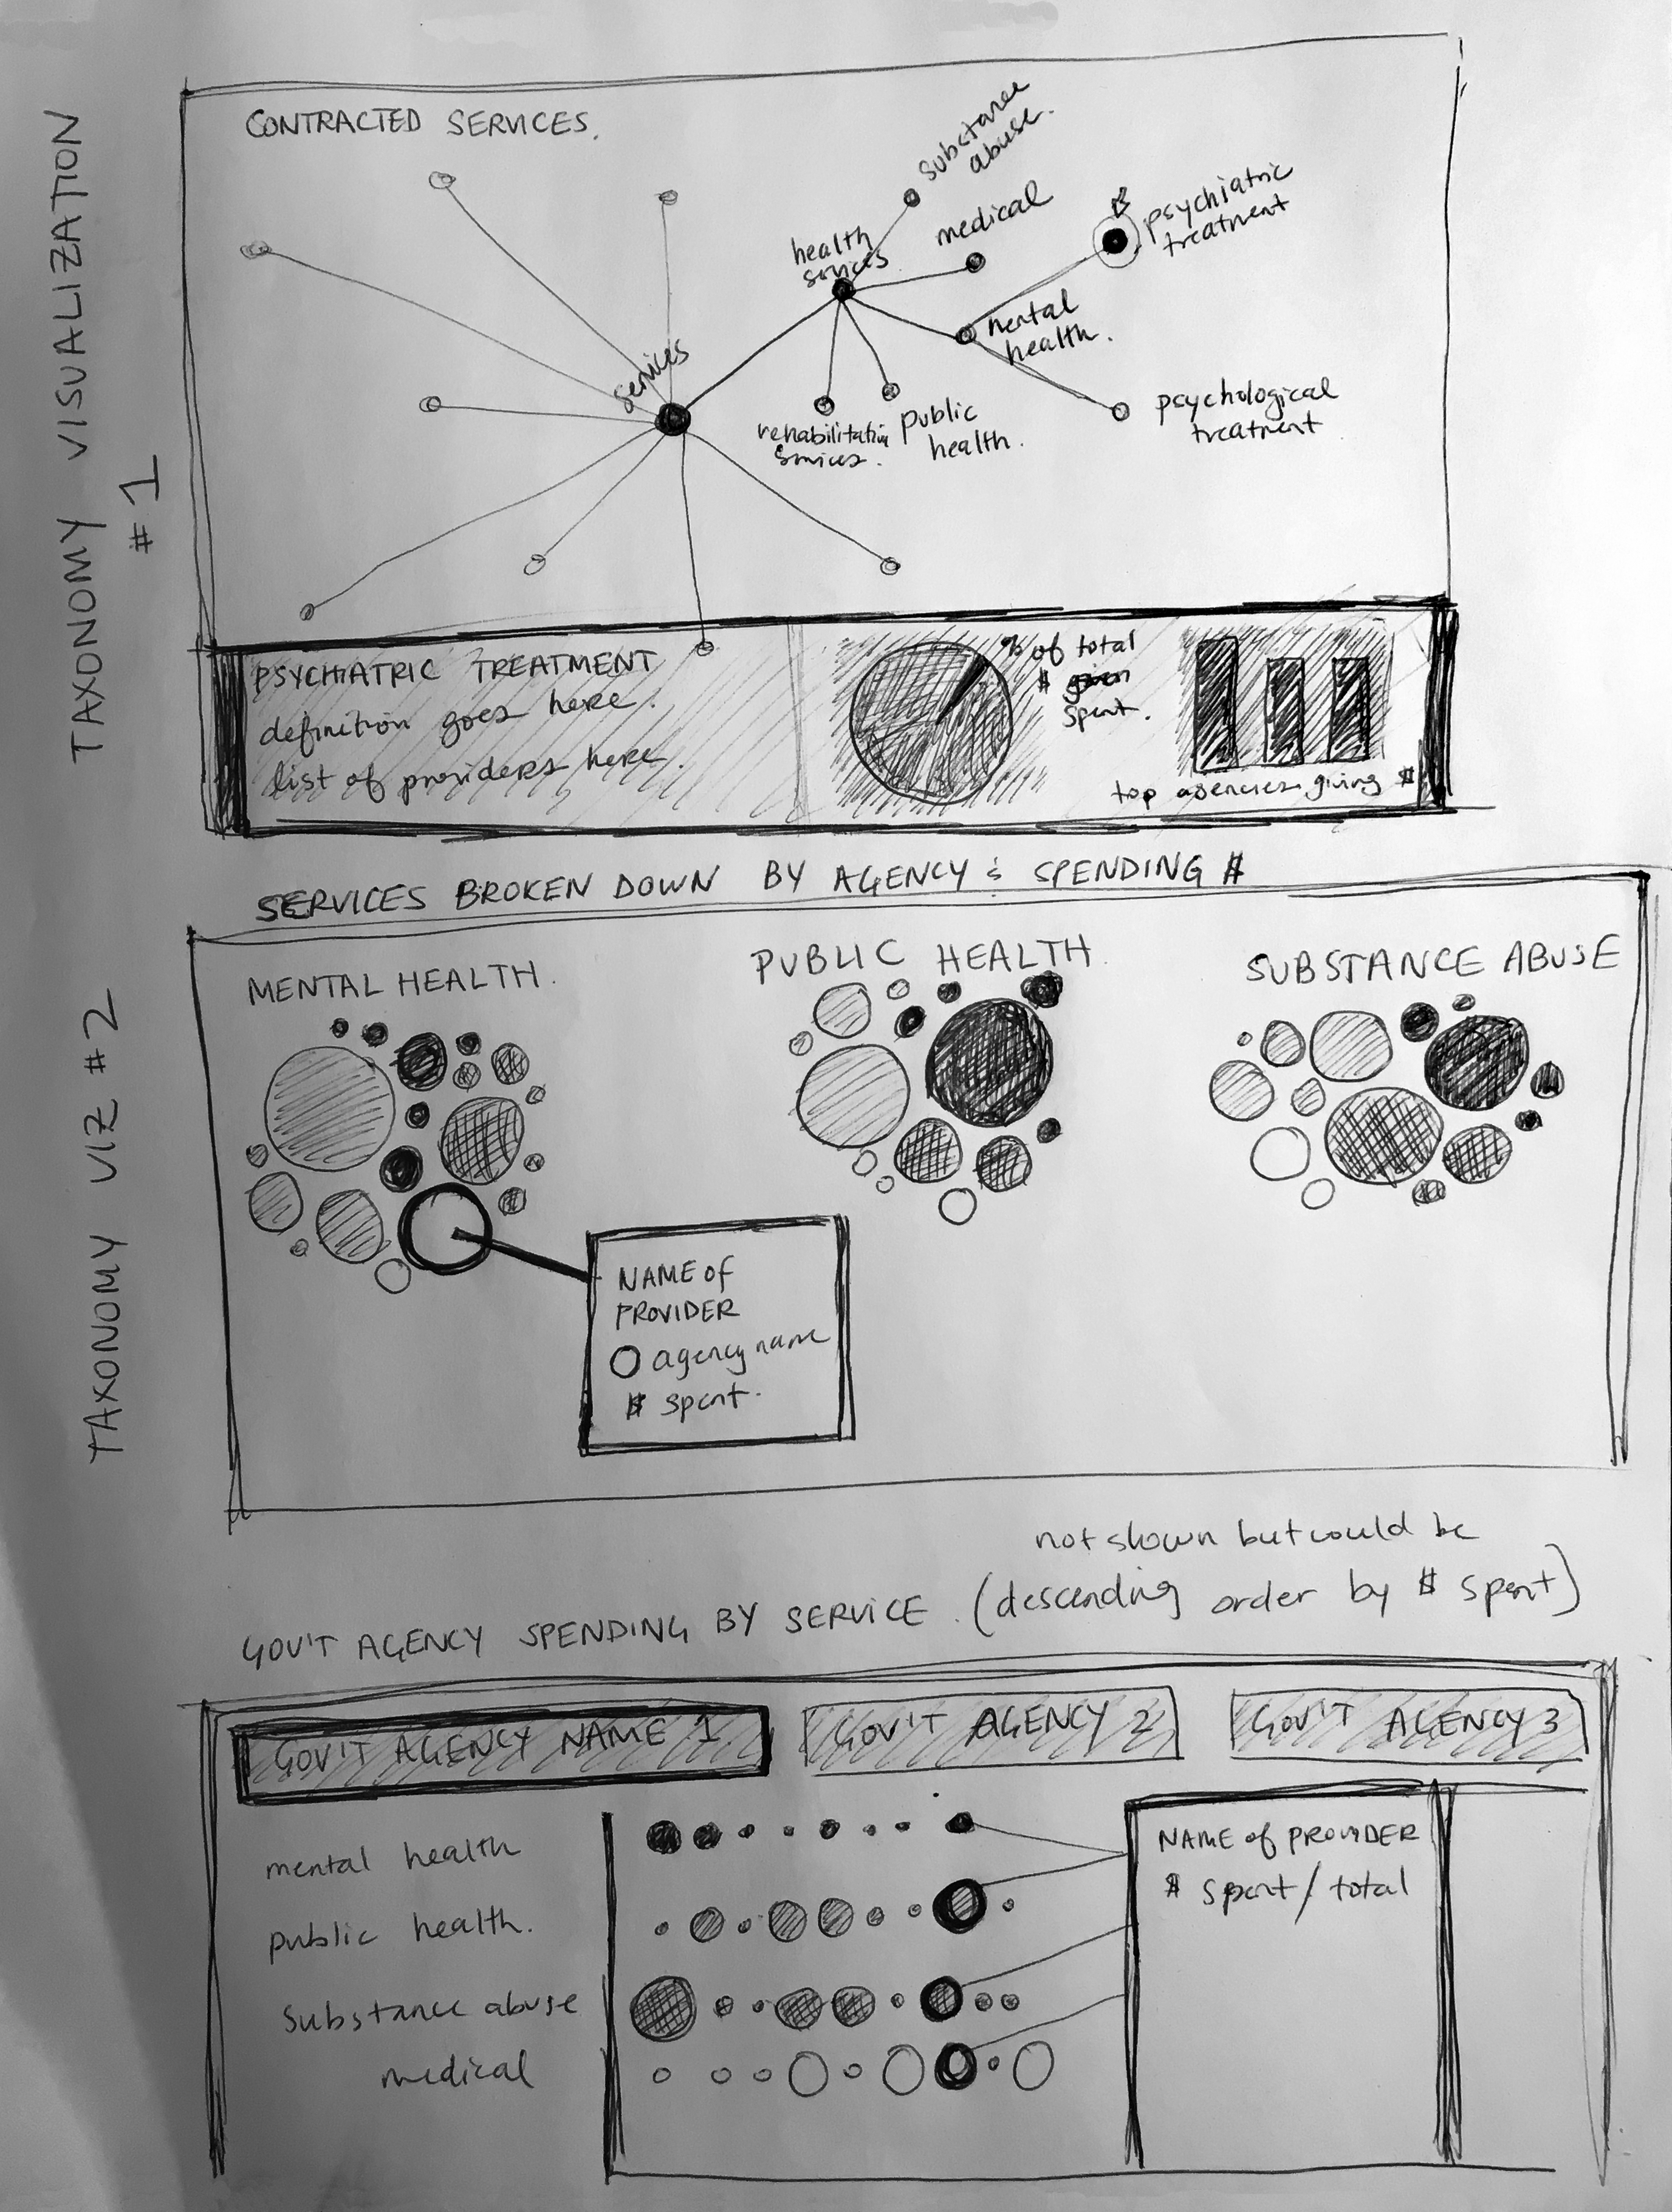 TAXONOMY VISUALIZATION
#1
CONTRACTED SERVICES.
substance
abuse.
medical
psychiatric
treatment
health
services
mental
health.
services
rehabilitation
services.
public
health.
psychological
treatment
PSYCHIATRIC TREATMENT
definition goes here.
list of providers here.
% of total
$ given
spent.
top agencies giving $
TAXONOMY VIZ #2
SERVICES BROKEN DOWN BY AGENCY & SPENDING $
MENTAL HEALTH.
PUBLIC HEALTH.
SUBSTANCE ABUSE
NAME OF
PROVIDER
agency name
$ spent.
not shown but could be
GOV'T AGENCY SPENDING BY SERVICE. (descending order by $ spent)
GOV'T AGENCY NAME 1
GOV'T AGENCY 2
GOV'T AGENCY 3
mental health
public health.
substance abuse
medical
NAME of PROVIDER
$ spent / total